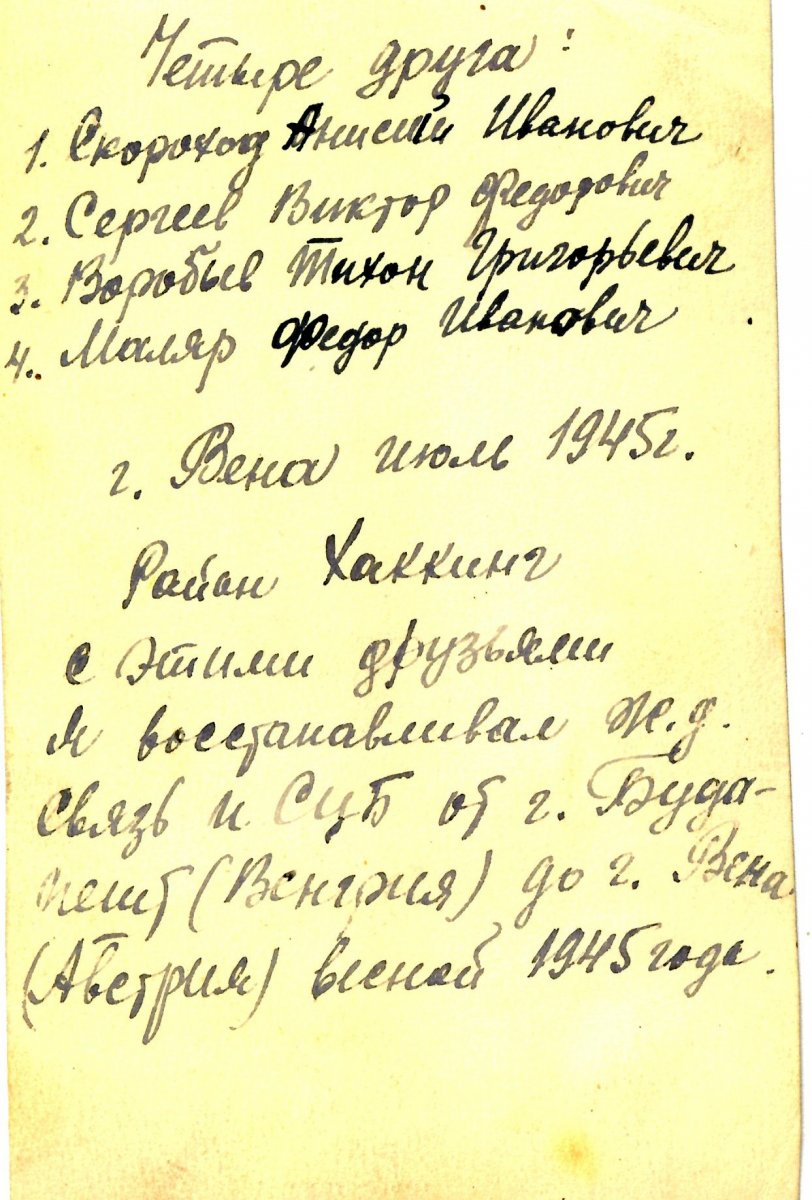 Четыре друга:
1. Скороход Анисий Иванович
2. Сергеев Виктор Федорович
3. Воробьев Тихон Григорьевич
4. Маляр Федор Иванович
г. Вена июль 1945г.
Район Хаккинг
с этими друзьями
я восстанавливал ж.д.
связь и СЦБ от г. Буда-
пешт (Венгрия) до г. Вена
(Австрия) весной 1945 года.